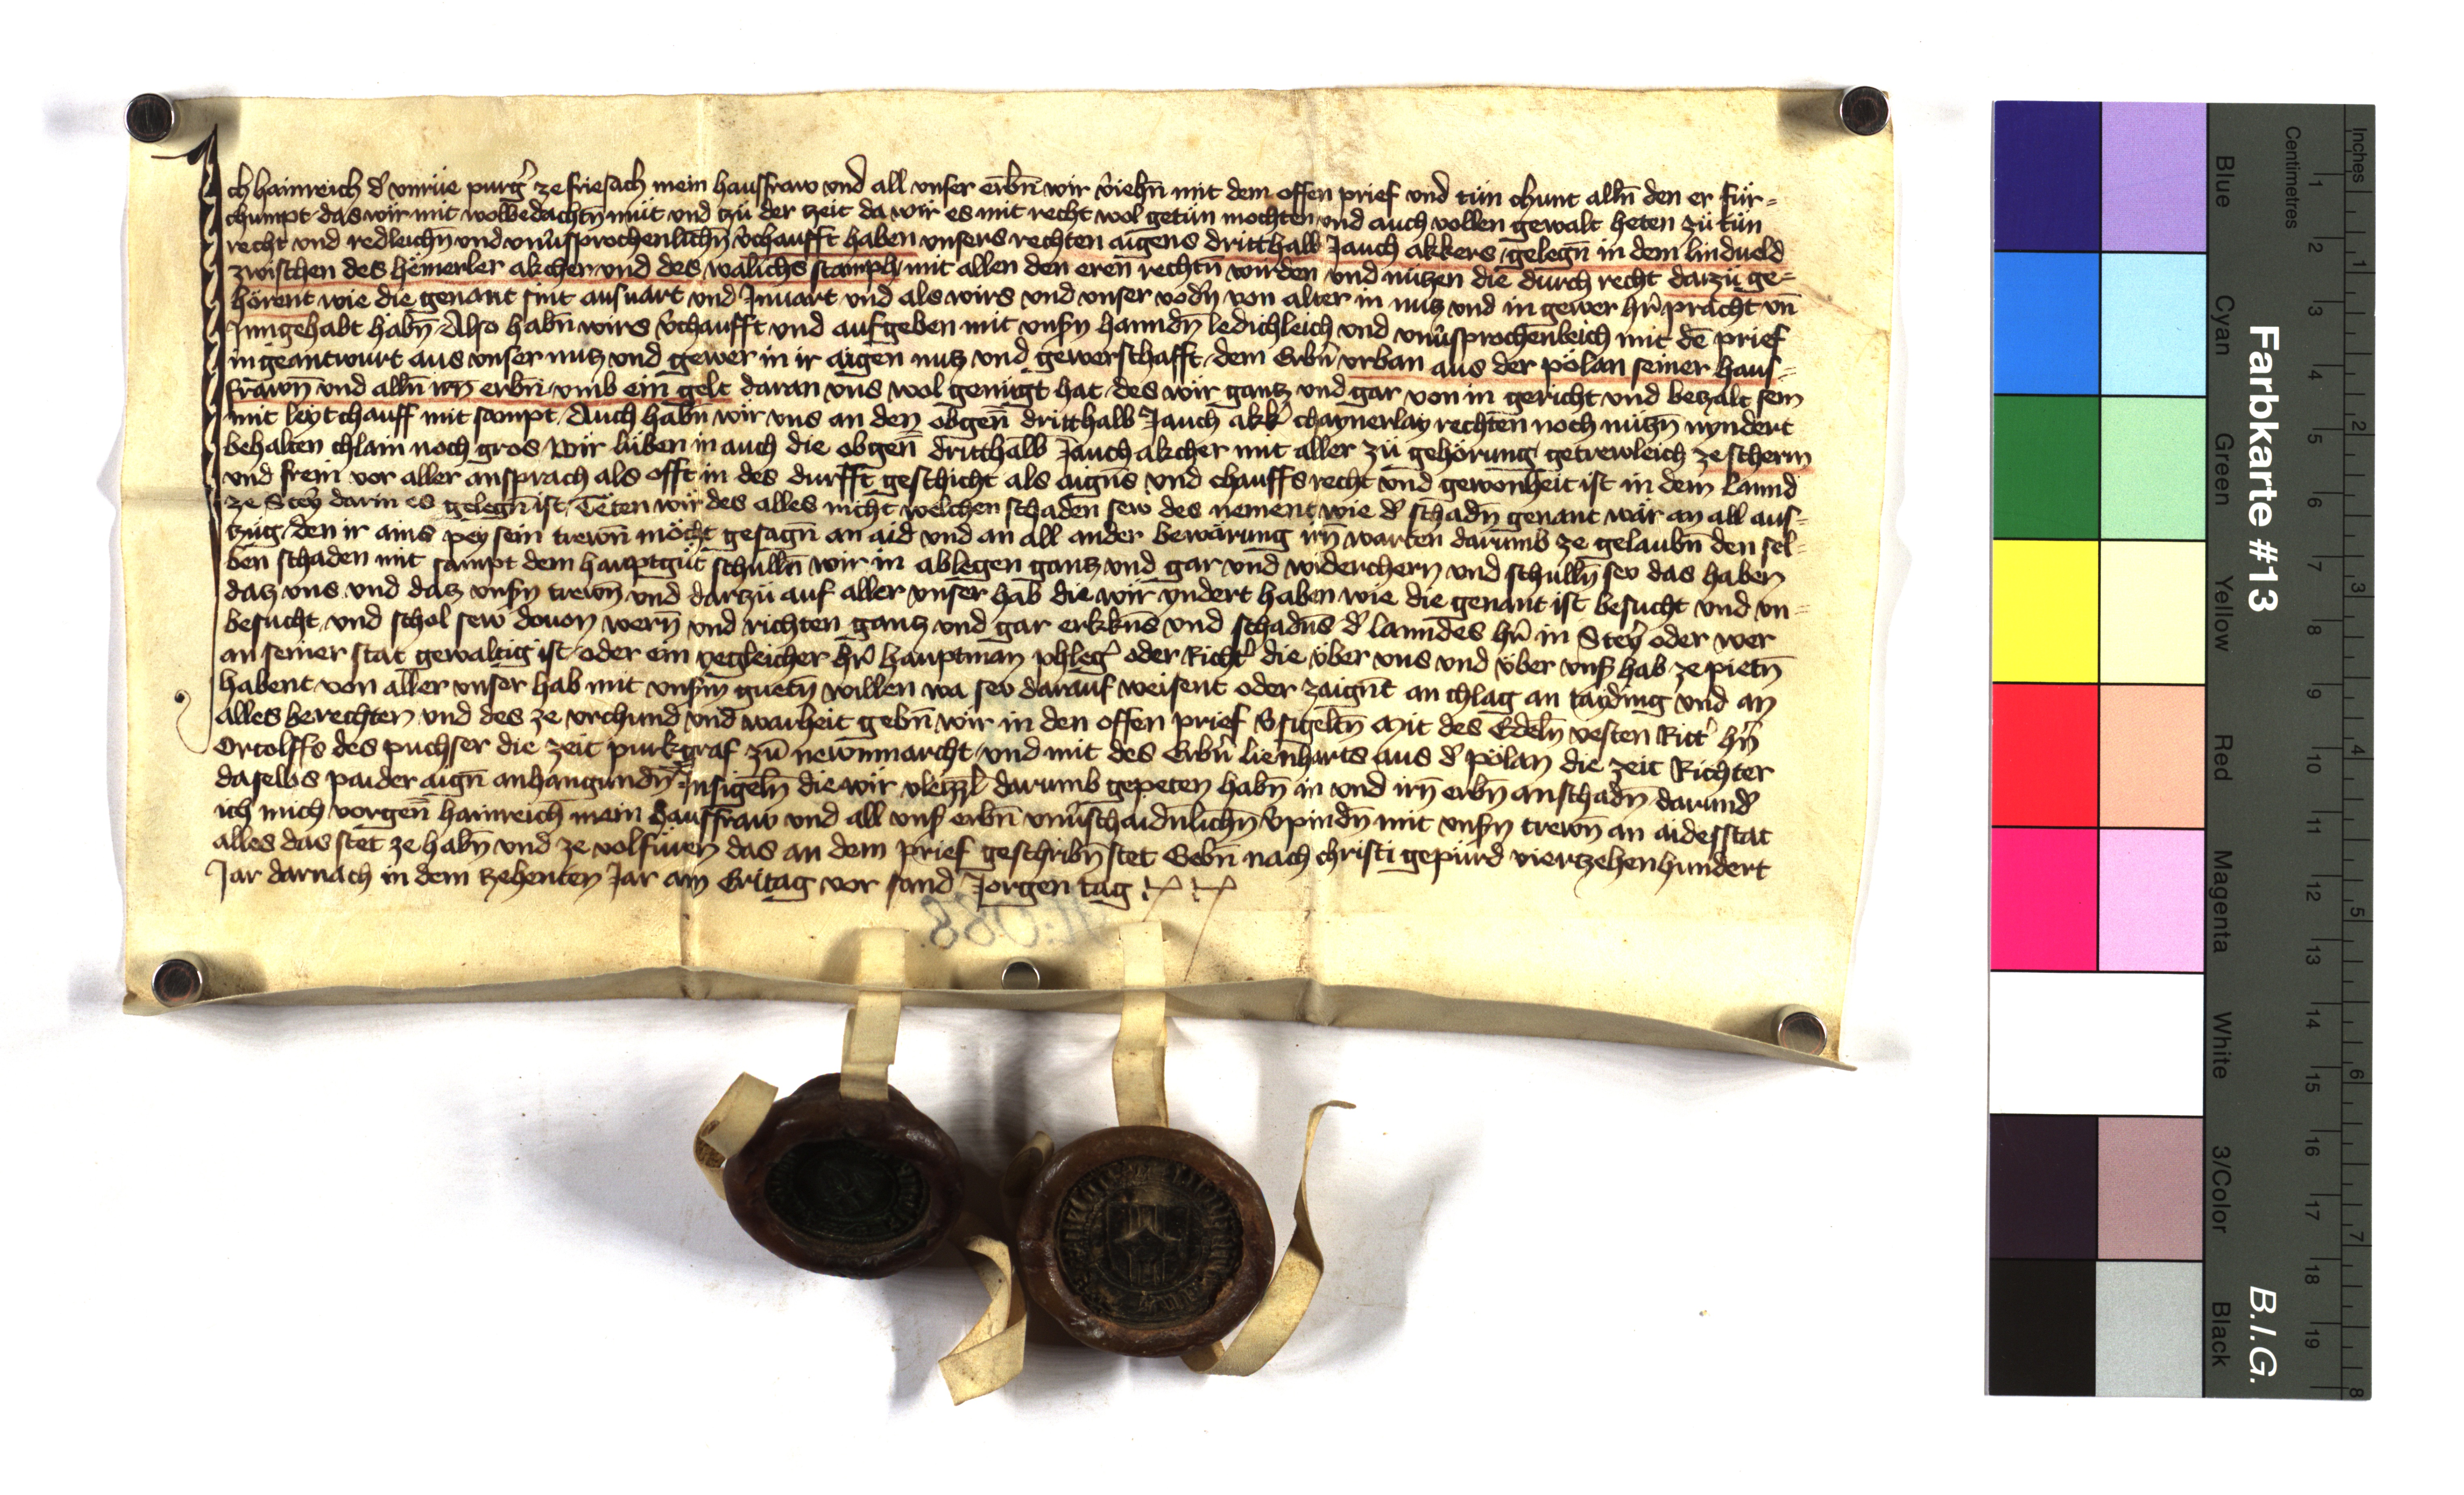 Ich hainreich d̄ vnrüe purḡ ze friesach mein hausfraw vnd all vnser erbn̄ wir v̄iehn̄ mit dem offen prief vnd tün chunt alln̄ den er für-
chumpt das wir mit wolbedachtn̄ müt vnd tzü der tzeit da wir es mit recht wol getün mochten vnd auch vollen gewalt heten zü tün
recht vnd redleichn̄ vnd vnū̄sprochenlichn̄ v̄chaufft haben vnsers rechten aigens dritthalb Jauch akkers gelegn̄ in dem lindueld
zwischen des hemerler akcher vnd des walichs stamph mit allen den eren rechtn̄ wirden vnd nützen die durch recht darzü ge-
hörent wie die genant sint ausuart vnd Jnuart vnd als wirs vnd vnser vodn̄ von alter in nutz vnd in gewer hr̄ pracht vn̄
Jnngehabt habn̄ Also habn̄ wirs v̄chaufft vnd aufgeben mit vnsn̄ hanndn̄ ledichleich vnd vnū̄sprochenleich mit dē prief
in geantwurt aus vnser nutz vnd gewer in ir aigen nutz vnd gewerschafft dem Erbn̄ vrban aus der pölan seiner haus-
frawn̄ vnd alln̄ irn erbn̄ vmb ein gelt daran vns wol genügt hat des wir gantz vnd gar von in gericht vnd betzalt sein
mit leytchauff mit sampt Auch habn̄ wir vns an den obgen̄ dritthalb Jauch akk̄ chaynerlay rechten noch nützn̄ nyndert
behalten chlain noch gros Wir lüben in auch die obgen̄ dritthalb Jauch akcher mit aller zü gehörung getrewleich ze scherm
vnd frein vor aller ansprach als offt in des durfft geschicht als aigens vnd chauffs recht vnd gewonheit ist in dem lannd
ze Stey̆r darin es gelegn̄ ist Teten wir des alles nicht welchen schaden sew des nement wie d̄ schadn̄ genant wär an all aus-
tzüg den ir ains pey sein trewn̄ möcht gesagn̄ an aid vnd an all ander bewärung irn̄ warten darumb ze gelaubn̄ den sel-
ben schaden mit sampt dem hauptgüt schulln̄ wir in ablegen gantz vnd gar vnd widerchern vnd schulln̄ sew das haben
datz vns vnd datz vnsn̄ trewn̄ vnd dartzü auf aller vnser hab die wir yndert haben wie die genant ist besucht vnd vn-
besucht vnd schol sew douon wern̄ vnd richten gantz vnd gar erkkens vnd schadens d̄ lanndes hr̄ in Stey̆r oder wer
an seiner stat gewaltig ist oder ein yegleicher hr̄ hauptman phleḡ oder Richt̄ die vber vns vnd vber vns̄ hab ze pietn̄
habent von aller vnser hab mit vnsm̄ guetn̄ willen wa sew darauf weisent oder zaigent an chlag an taiding vnd an
alles berechten vnd des ze vrchund vnd warheit gebn̄ wir in den offen prief v̄sigeltn̄ Mit des Edeln̄ vesten Ritt̄ hn̄
Ortolffs des puchser die zeit purkgraf zü newnmarcht vnd mit des Erbn̄ lienharts aus d̄ pölan die zeit Richter
daselbs paider aign̄ anhangundn̄ Jnsigeln̄ die wir vleizzl̄ darumb gepeten habn̄ in vnd irn̄ erbn̄ an schadn̄ darund̄
ich mich vorgen̄ hainreich mein hausfraw vnd all vns̄ erbn̄ vnū̄schaidnlichn̄ v̄pindn̄ mit vnsn̄ trewn̄ an aidesstat
alles das stet ze habn̄ vnd ze volfüren das an dem prief geschribn̄ stet Gebn̄ nach christi gepürd viertzehenhundert
Jar darnach in dem zehenten Jar am Eritag vor sand Jorgen tag
Farbkarte #13 B.I.G.
Blue Cyan Green Yellow Red Magenta White 3/Color Black
Centimetres 1 2 3 4 5 6 7 8 9 10 11 12 13 14 15 16 17 18 19
Inches 1 2 3 4 5 6 7 8